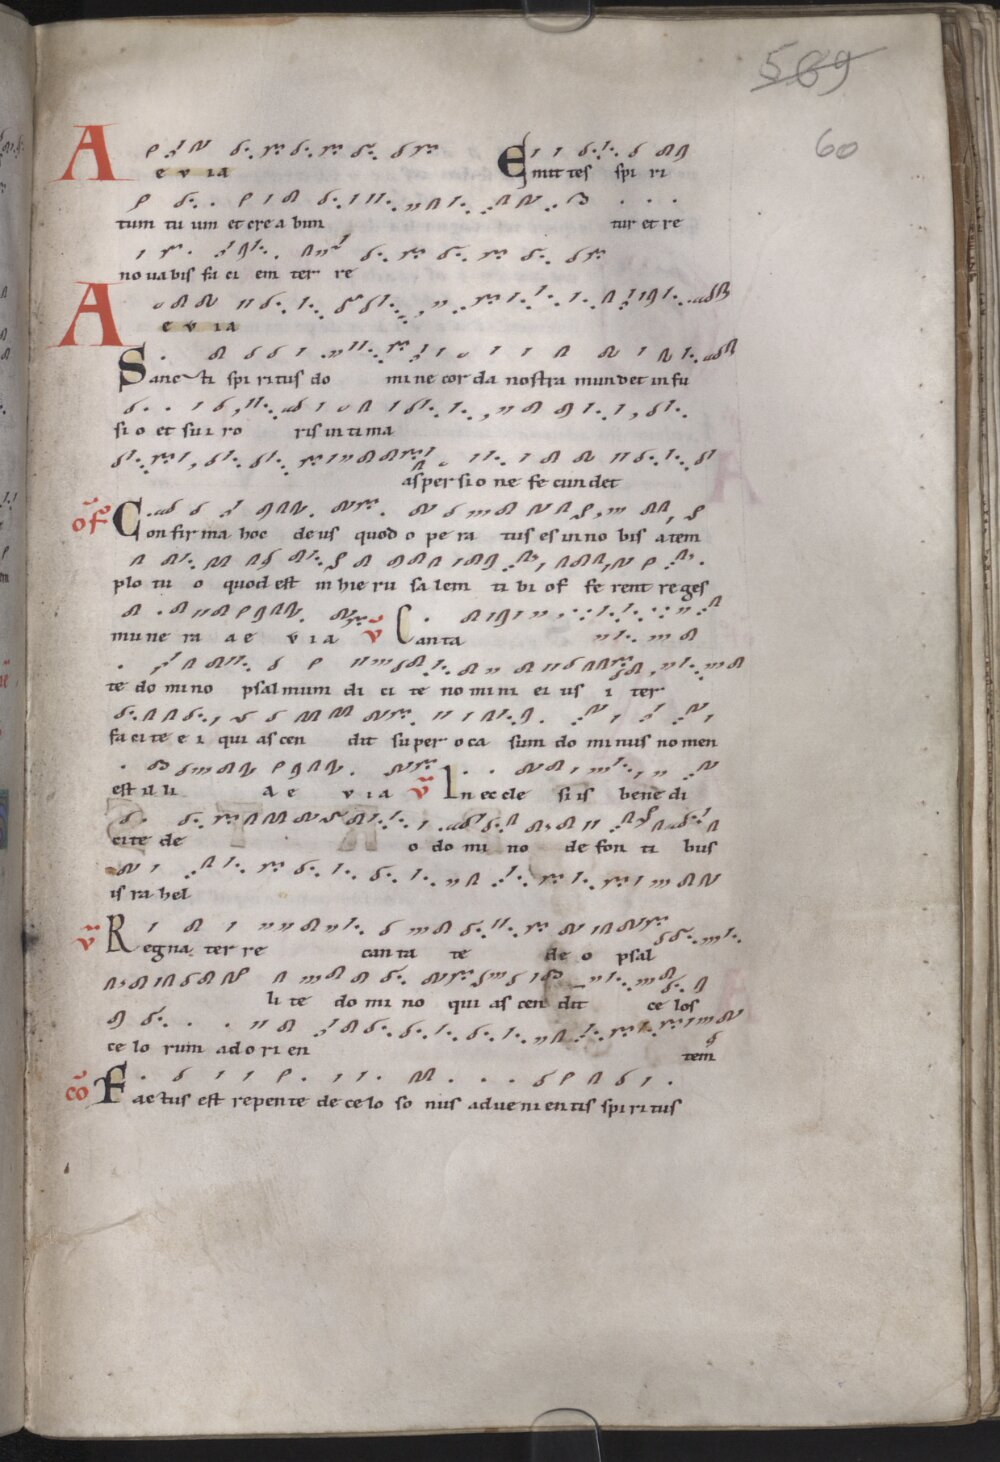 589
60
A e v ia Emittes spi ri
tum tu um et cre a bun tur et re
no va bis fa ci em ter re
A e v ia
Sanc ti spi ritus do mi ne cor da nostra mun det in fu
si o et su i ro ris in ti ma
aspersi o ne fe cun det
of Con fir ma hoc de us quod o pe ra tus es in no bis a tem
plo tu o quod est in hie ru sa lem ti bi of fe rent re ges
mu ne ra a e v i a v Canta
te do mi no psal mum di ci te no mi ni ei us i ter
fa ci te e i qui as cen dit su per o ca sum do mi nus no men
est il li a e v i a v In ec cle si is bene di
ci te de o do mi no de fon ti bus
is ra hel
v Regna ter re can ta te de o psal
li te do mi no qui as cen dit ce los
ce lo rum ad o ri en tem
co Fac tus est repen te de ce lo so nus ad ve ni en tis spi ri tus